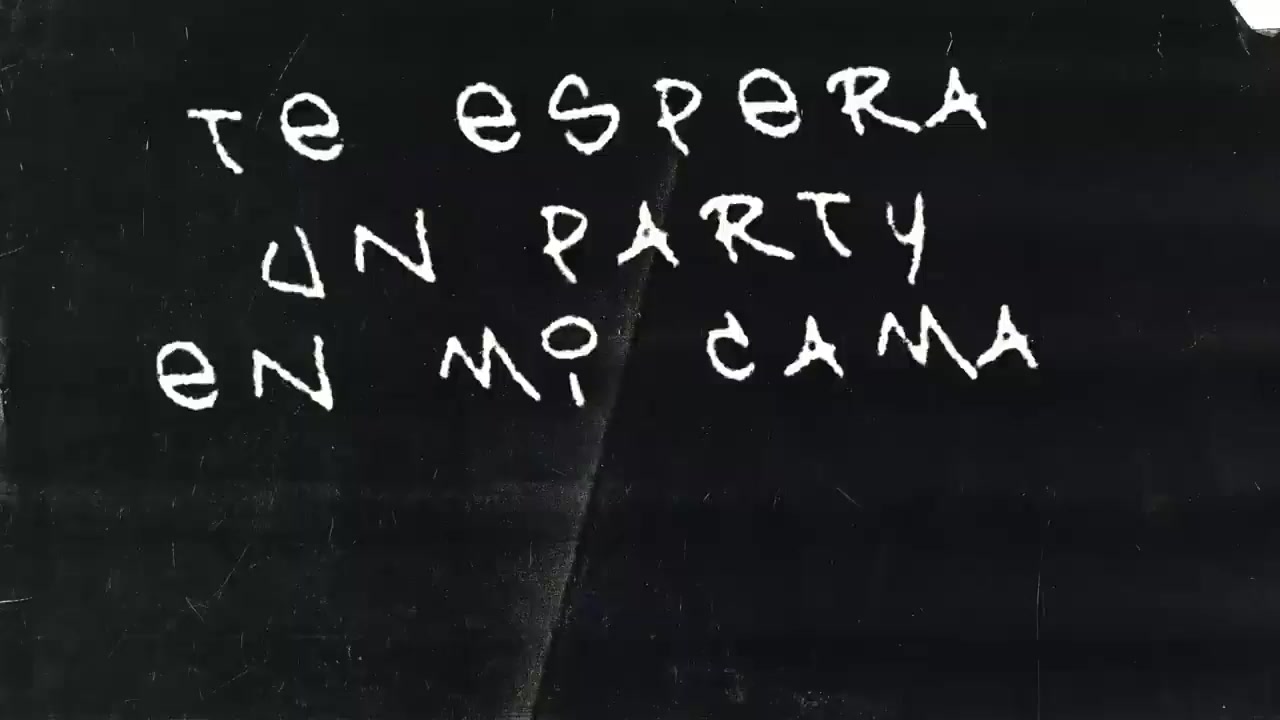 Te eSPeRA
UN PARTY
eN Mi CAMA